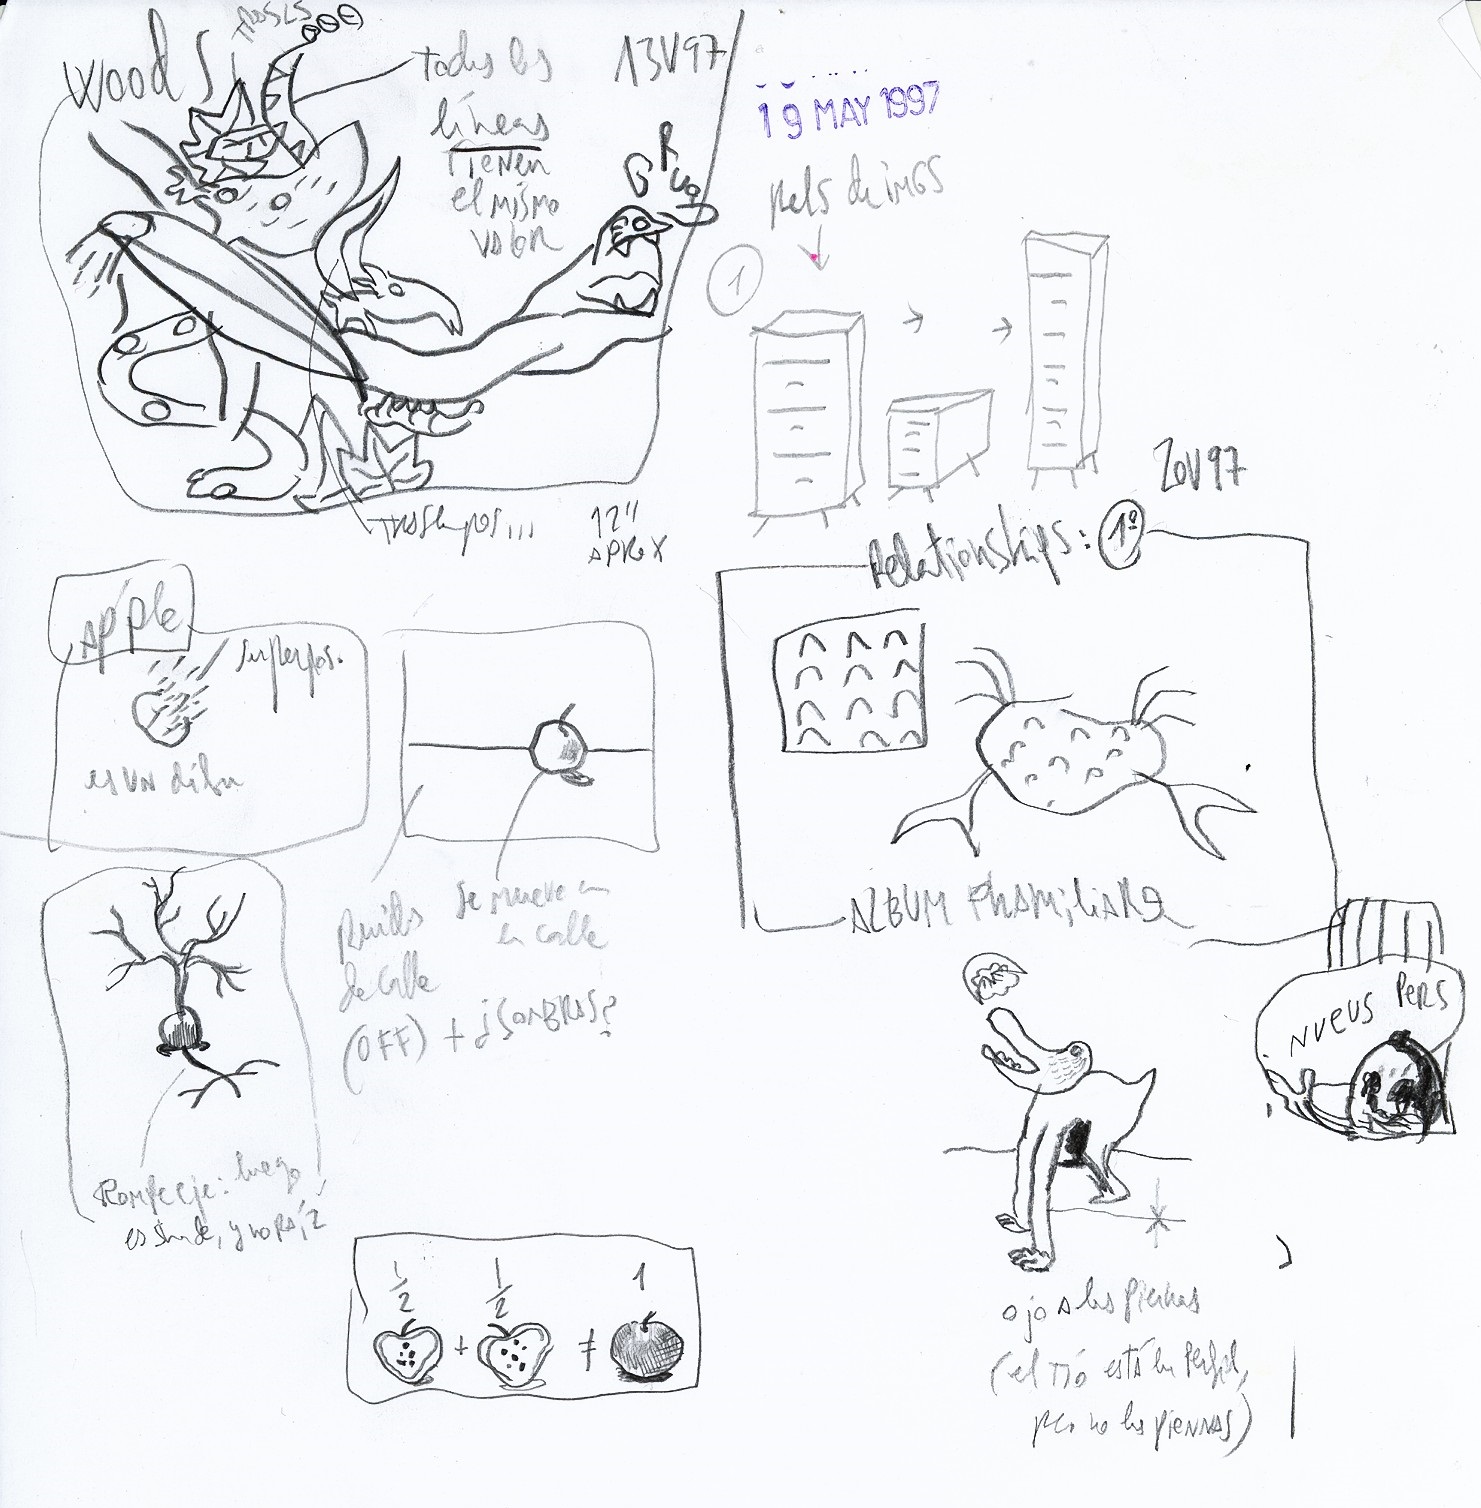 WOODS
todas las
líneas
TIENEN
el mismo
valor
13V97
GRUA
12"
APROX
19 MAY 1997
Rels de IMGS
1
20V97
Relationships: 1º
ALBUM PHAMiLiARE
NUEUS PERS
Apple
superpos.
es UN dibu
Ruidos
de calle
(OFF) + ¿SOMBRAS?
Se mueve en
la calle
Rompeeje: luego
es
y no RAÍZ
1/2 1/2 1
+ ≠
ojo a las piernas
(el TÍO está en perfil,
pero no las piernas)